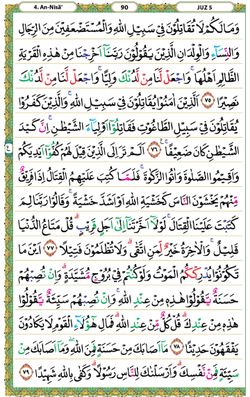 4. An-Nisā' 90 JUZ 5
وَمَا لَكُمْ لَا تُقَاتِلُوْنَ فِيْ سَبِيْلِ اللّٰهِ وَالْمُسْتَضْعَفِيْنَ مِنَ الرِّجَالِ
وَالنِّسَاۤءِ وَالْوِلْدَانِ الَّذِيْنَ يَقُوْلُوْنَ رَبَّنَآ اَخْرِجْنَا مِنْ هٰذِهِ الْقَرْيَةِ
الظَّالِمِ اَهْلُهَاۚ وَاجْعَلْ لَّنَا مِنْ لَّدُنْكَ وَلِيًّاۚ وَاجْعَلْ لَّنَا مِنْ لَّدُنْكَ
نَصِيْرًاۗ ٧٥ اَلَّذِيْنَ اٰمَنُوْا يُقَاتِلُوْنَ فِيْ سَبِيْلِ اللّٰهِۚ وَالَّذِيْنَ كَفَرُوْا
يُقَاتِلُوْنَ فِيْ سَبِيْلِ الطَّاغُوْتِ فَقَاتِلُوْٓا اَوْلِيَاۤءَ الشَّيْطٰنِۚ اِنَّ كَيْدَ
الشَّيْطٰنِ كَانَ ضَعِيْفًا ٧٦ اَلَمْ تَرَ اِلَى الَّذِيْنَ قِيْلَ لَهُمْ كُفُّوْٓا اَيْدِيَكُمْ
وَاَقِيْمُوا الصَّلٰوةَ وَاٰتُوا الزَّكٰوةَۚ فَلَمَّا كُتِبَ عَلَيْهِمُ الْقِتَالُ اِذَا فَرِيْقٌ
مِّنْهُمْ يَخْشَوْنَ النَّاسَ كَخَشْيَةِ اللّٰهِ اَوْ اَشَدَّ خَشْيَةًۚ وَقَالُوْا رَبَّنَا لِمَ
كَتَبْتَ عَلَيْنَا الْقِتَالَۚ لَوْلَآ اَخَّرْتَنَآ اِلٰٓى اَجَلٍ قَرِيْبٍۗ قُلْ مَتَاعُ الدُّنْيَا
قَلِيْلٌۚ وَالْاٰخِرَةُ خَيْرٌ لِّمَنِ اتَّقٰىۗ وَلَا تُظْلَمُوْنَ فَتِيْلًا ٧٧ اَيْنَ مَا
تَكُوْنُوْا يُدْرِكْكُّمُ الْمَوْتُ وَلَوْ كُنْتُمْ فِيْ بُرُوْجٍ مُّشَيَّدَةٍۗ وَاِنْ تُصِبْهُمْ
حَسَنَةٌ يَّقُوْلُوْا هٰذِهٖ مِنْ عِنْدِ اللّٰهِۚ وَاِنْ تُصِبْهُمْ سَيِّئَةٌ يَّقُوْلُوْا
هٰذِهٖ مِنْ عِنْدِكَۗ قُلْ كُلٌّ مِّنْ عِنْدِ اللّٰهِۗ فَمَالِ هٰٓؤُلَاۤءِ الْقَوْمِ لَا يَكَادُوْنَ
يَفْقَهُوْنَ حَدِيْثًا ٧٨ مَآ اَصَابَكَ مِنْ حَسَنَةٍ فَمِنَ اللّٰهِۖ وَمَآ اَصَابَكَ مِنْ
سَيِّئَةٍ فَمِنْ نَّفْسِكَۗ وَاَرْسَلْنٰكَ لِلنَّاسِ رَسُوْلًاۗ وَكَفٰى بِاللّٰهِ شَهِيْدًا ٧٩